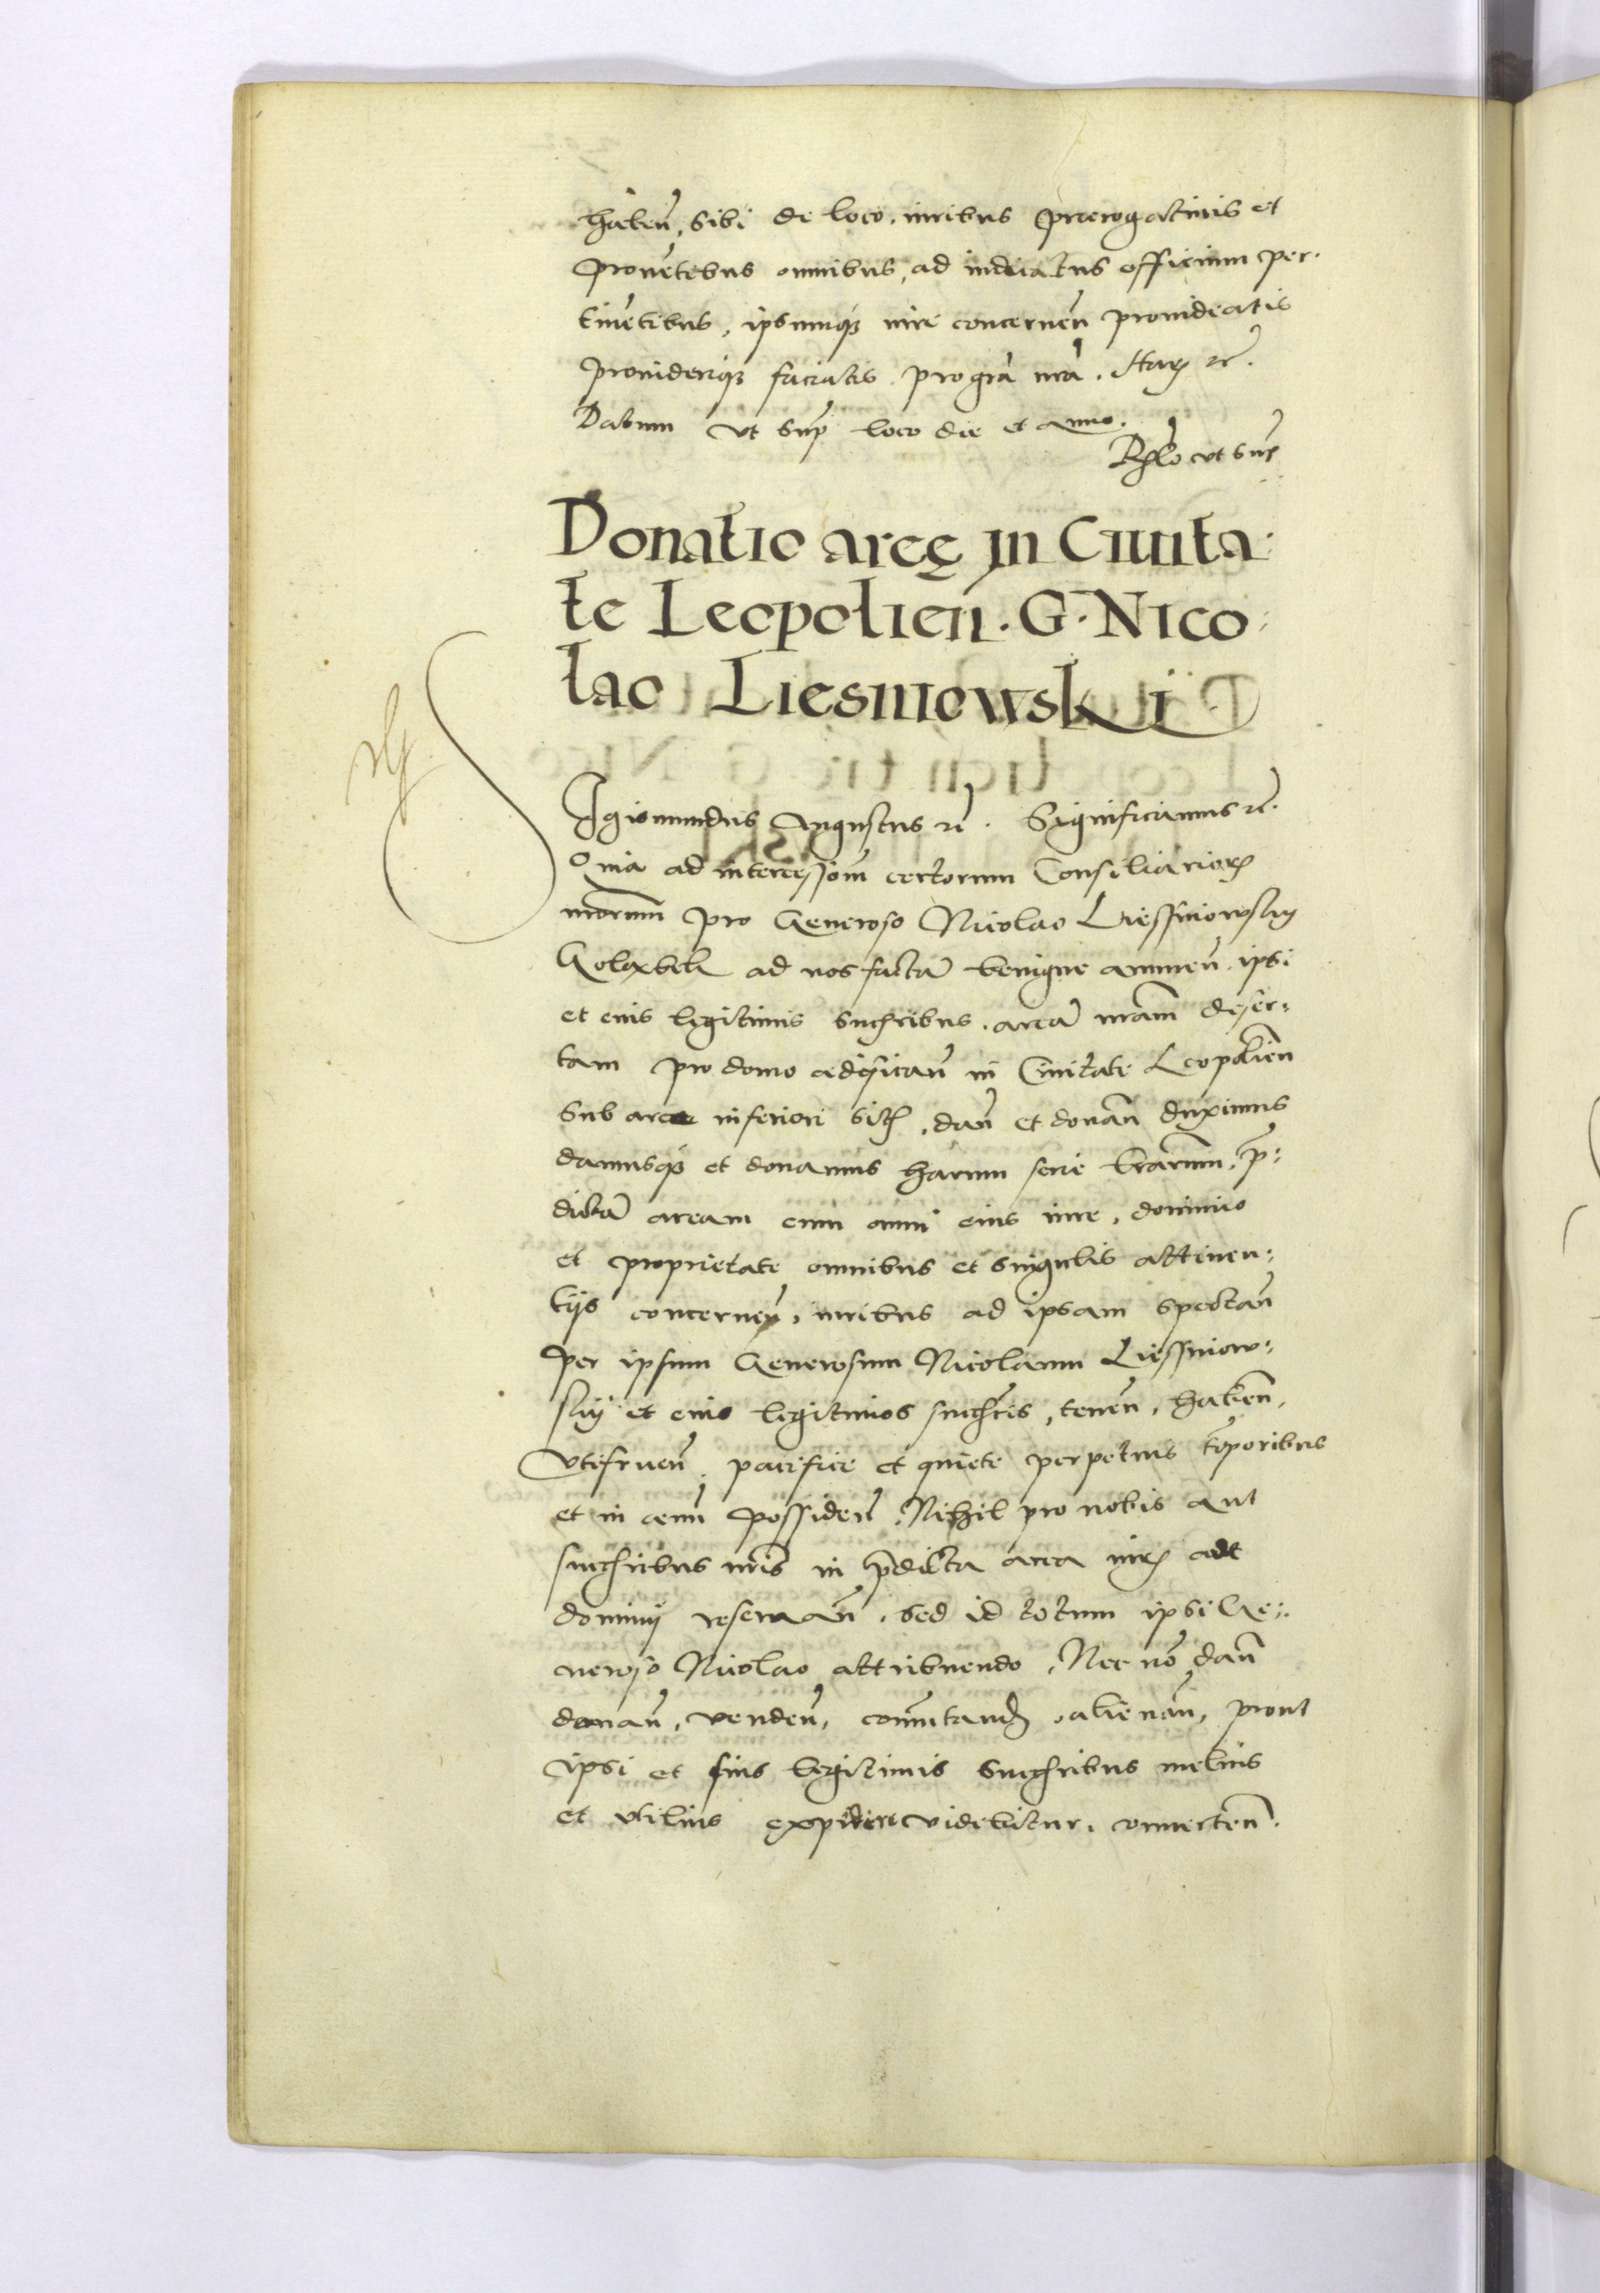 habeñ, sibi de loco, iuribus praerogatiuis et
prouẽtibus omnibus, ad iudicatus officium per-
tinẽtibus, ipsumq₃ iure concerneñ prouideatis
prouideriq₃ faciatis. pro grã nrã. Harꝫ ꝛc̃.
Datum vt sup̃ loco die et anno.
Rẽlo vt sup̃
Donatio areę in Ciuita-
te Leopolieñ. G. Nico-
lao Liesniowski
Sigismundus Augustus ꝛc̃. Significamus ꝛc̃.
Quia ad intercessiom̃ certorum Consiliariorꝫ
nr̃orum pro Generoso Nicolao Liessniowsky
ad nos factã benigne annueñ. ipsi
et eius legitimis succ̃ribus. areã nr̃am deser-
tam pro domo aedificañ in Ciuitate Leopolieñ
sub arce inferiori sitꝫ, dañ et donañ duximus
damusq₃ et donamus harum serie lr̃arum. p̃-
dictã aream cum omni eius iure, dominio
et proprietate omnibus et singulis attinen-
tijs concerneñ, iuribus ad ipsam spectañ
Per ipsum Generosum Nicolaum Liessniow-
sky et eius legitimos succr̃es, teneñ, habeñ,
vtifrueñ, pacifice et quiete perpetuis tẽporibus
et in aeuũ possideñ. Nihil pro nobis aut
succr̃ibus nr̃is in p̃dicta area iurꝫ aut
dominij reseruañ. sed id totum ipsi Ge-
neroso Nicolao attribuendo. Nec nõ dañ
donañ, vendeñ, com̃utandꝫ, alienañ, prout
ipsi et suis legitimis succr̃ibus melius
et vtilius expedire videbitur, conuerteñ.